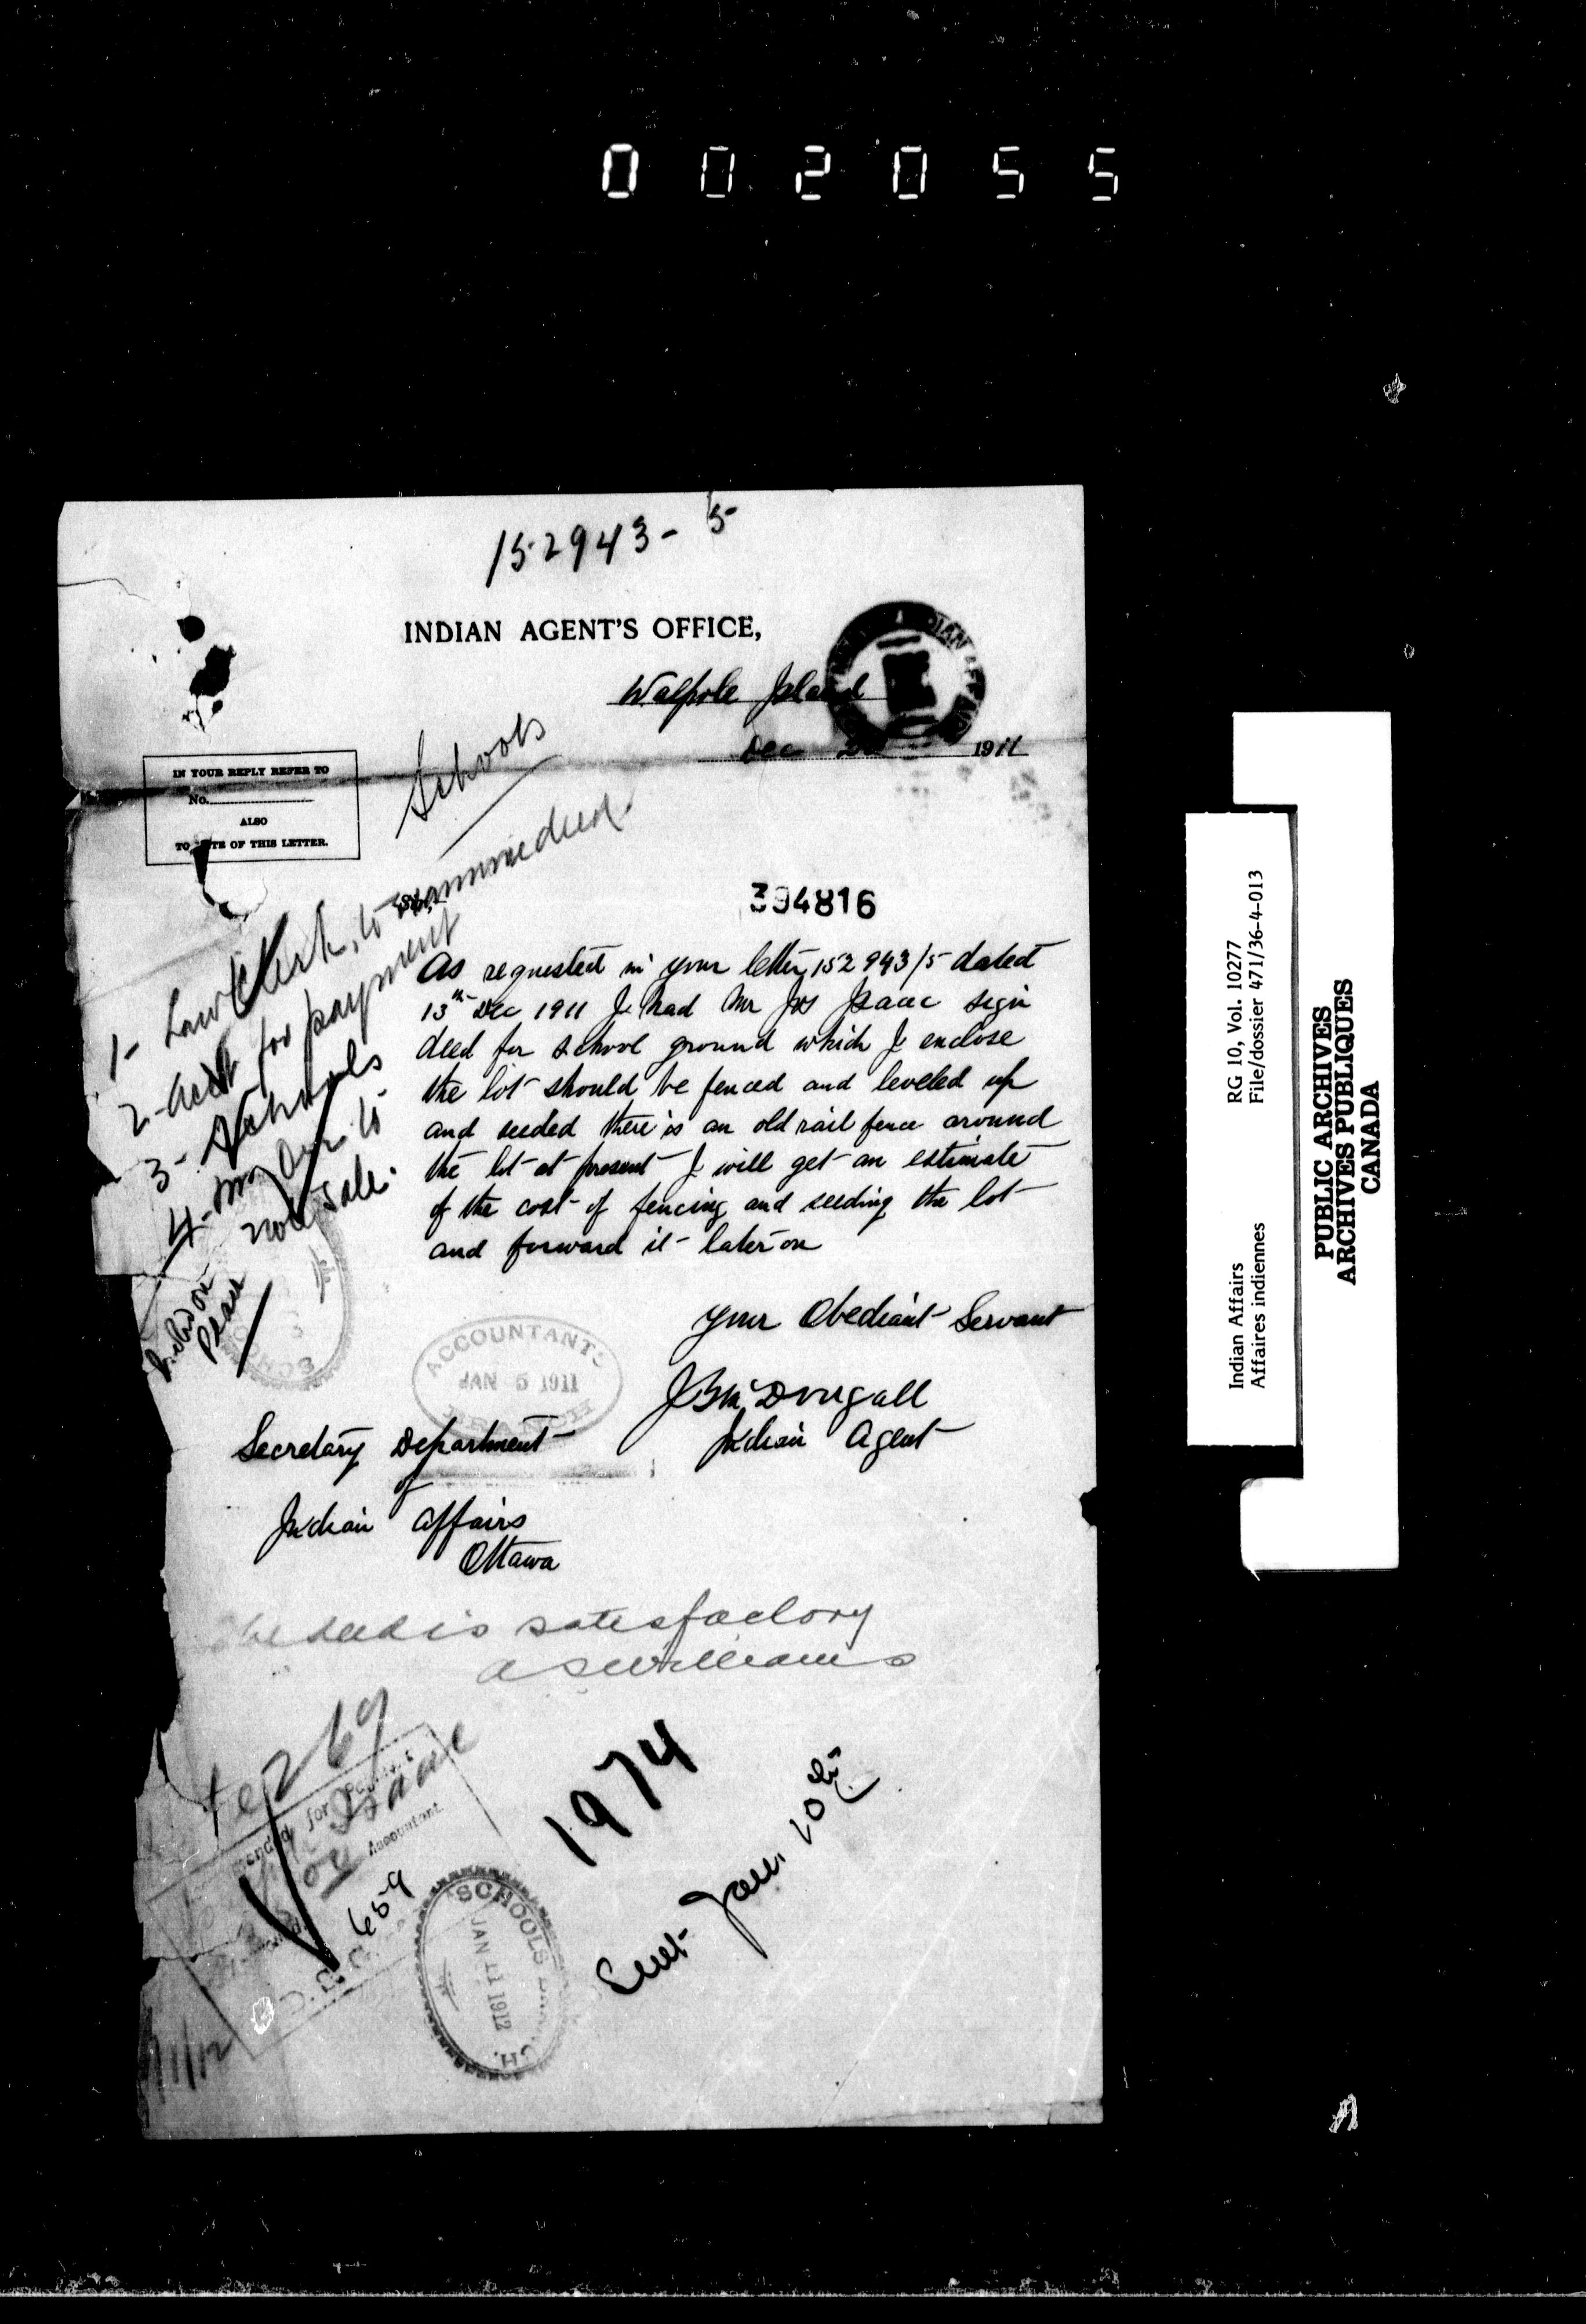 002055
152943-5
INDIAN AGENT'S OFFICE,
Walpole Island
Dec 1911
IN YOUR REPLY REFER TO
No.
ALSO
TO DATE OF THIS LETTER.
Schools
394816
1- Law Clerk, to examine deed.
2- acct for payment
3- Schools
4- Mr Orr to
note sale.
As requested in your letter 152943/5 dated
13th Dec 1911 I had Mr Jos Isaac sign
deed for school ground which I enclose
the lot should be fenced and leveled up
and seeded there is an old rail fence around
the lot at present I will get an estimate
of the cost of fencing and seeding the lot
and forward it later on
your Obediant Servant
J B McDougall
Indian Agent
ACCOUNTANTS
JAN 5 1911
BRANCH
Secretary Department
of
Indian affairs
Ottawa
The deed is satesfactory
A S Williams
269
for
Isaac
Accountant.
659
1974
Sent Jan. 10th
SCHOOLS BRANCH.
JAN 11 1912
Indian Affairs
Affaires indiennes
RG 10, Vol. 10277
File/dossier 471/36-4-013
PUBLIC ARCHIVES
ARCHIVES PUBLIQUES
CANADA